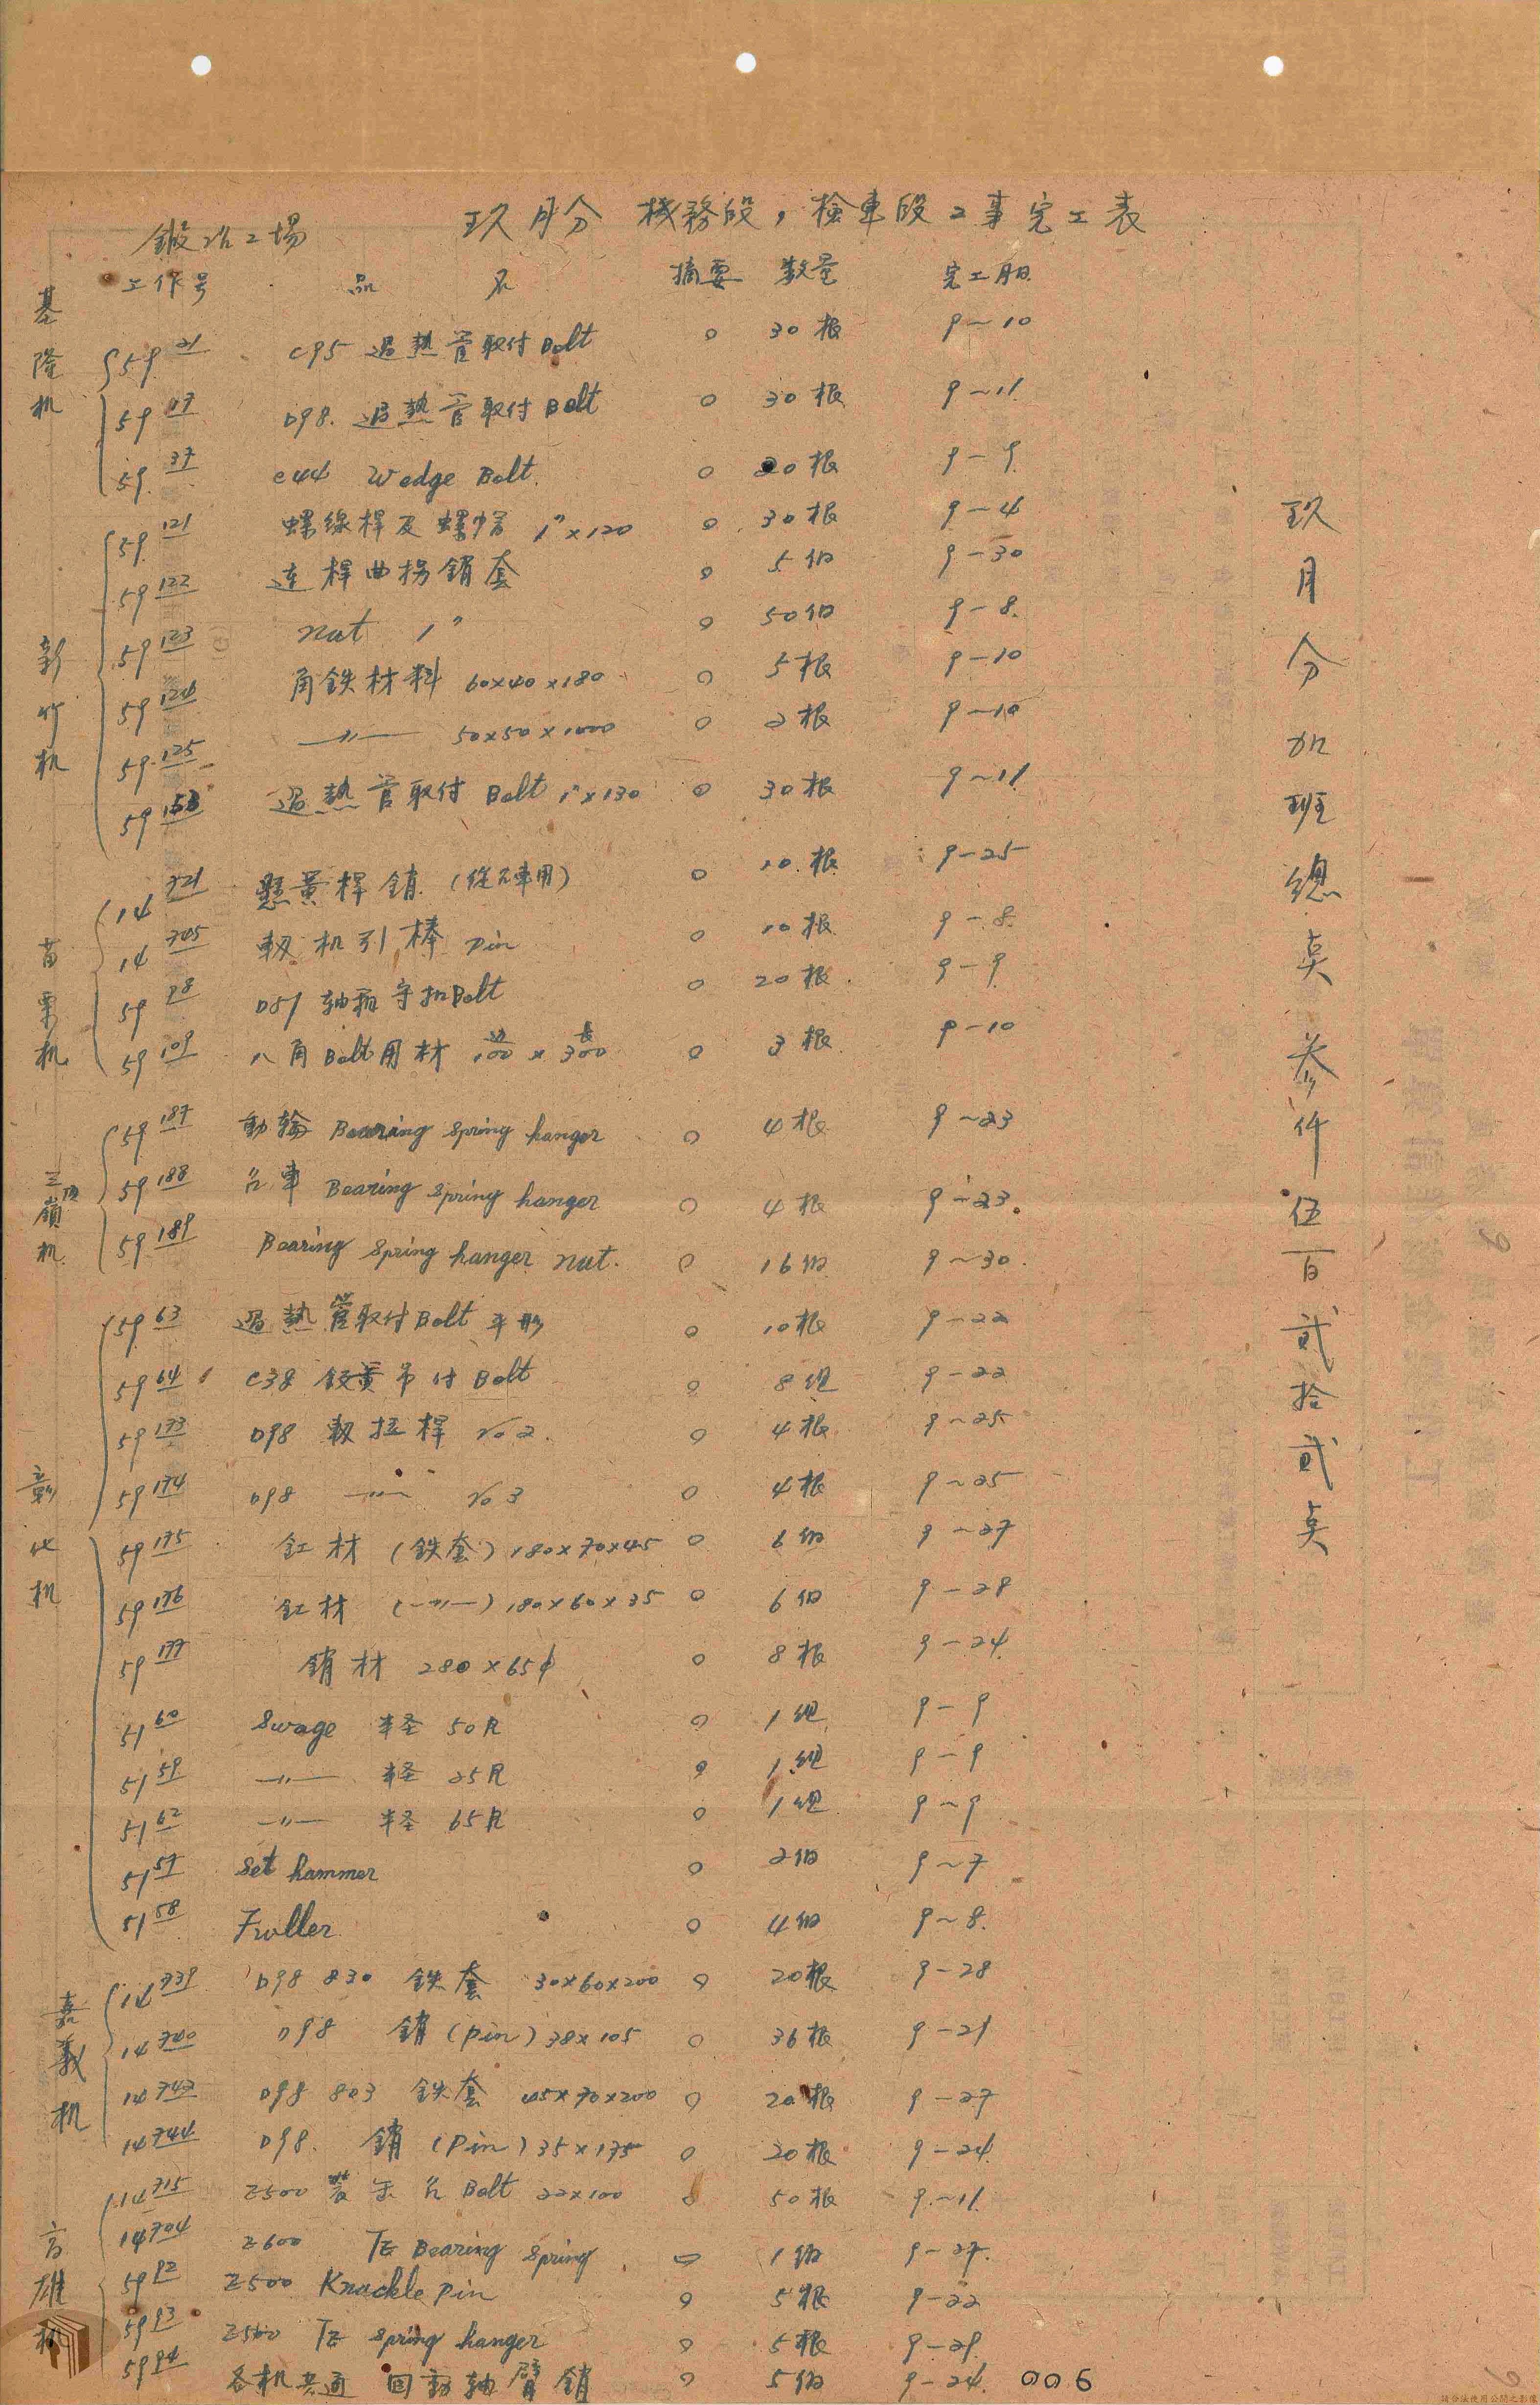 玖月分 機務段，檢車段工事完工表
鍛冶工場
工作号 品名 摘要 数量 完工月日
基隆机
59 21 C95 過熱管取付Bolt ○ 30根 9~10
59 47 D98. 過熱管取付Bolt ○ 30根 9~11
59. 37 C44 Wedge Bolt. ○ 20根 9-9
新竹机
59. 121 螺線桿及螺帽 1"×120 ○ 30根 9-4
59 122 连桿曲拐銷套 ○ 5個 9-30
59 123 nut 1" ○ 50個 9-8.
59 124 角鉄材料 60×40×180 ○ 5根 9-10
59 125 〃 50×50×1000 ○ 2根 9-10
59 153 過熱管取付Bolt 1"×130 ○ 30根 9~11
苗栗机
14 721 懸簧桿銷 (從不車用) ○ 10根 9-25
14 745 軔机引棒 Pin ○ 10根 9-8
59 98 D51 軸箱守扣Bolt ○ 20根 9-9
59 109 八角Bolt用材 边100×長300 ○ 3根 9-10
三嶺頂机
59 187 動輪 Bearing Spring hanger ○ 4根 9~23
59 188 台車 Bearing Spring hanger ○ 4根 9-23.
59 189 Bearing Spring hanger nut. ○ 16個 9~30.
彰化机
59 63 過熱管取付Bolt 平形 ○ 10根 9-22
59 64 C38 鈑簧吊付Bolt ○ 8组 9-22
59 173 D98 軔拉桿 No 2. ○ 4根 9~25
59 174 D98 〃 No 3 ○ 4根 9~25
59 175 釭材 (鉄套) 180×70×45 ○ 6個 9-27
59 176 釭材 (〃) 180×60×35 ○ 6個 9-28
59 177 銷材 280×65φ ○ 8根 9-24
51 60 Swage 半径 50R ○ 1组 9-9
51 59 〃 半径 25R ○ 1组 9-9
51 62 〃 半径 65R ○ 1组 9~9
51 57 Set hammer ○ 2個 9~7
51 58 Fuller ○ 4個 9~8.
嘉義机
14 739 D98 830 鉄套 30×60×200 ○ 20根 9-28
14 740 D98 銷(Pin) 38×105 ○ 36根 9-21
14 743 D98 803 鉄套 45×70×200 ○ 20根 9-27
14 744 D98. 銷(Pin) 35×175 ○ 20根 9-24.
高雄机
14 715 Z500 台Bolt 22×100 ○ 50根 9~11
14 704 Z600 TE Bearing Spring ○ 1個 9-27.
59 92 Z500 Knuckle Pin ○ 5根 9-22
59 93 Z500 TE Spring hanger ○ 5根 9-29
59 94 各机共通 回動軸臂銷 ○ 5個 9-24.
玖月分加班總点 叁仟伍百貳拾貳点
006